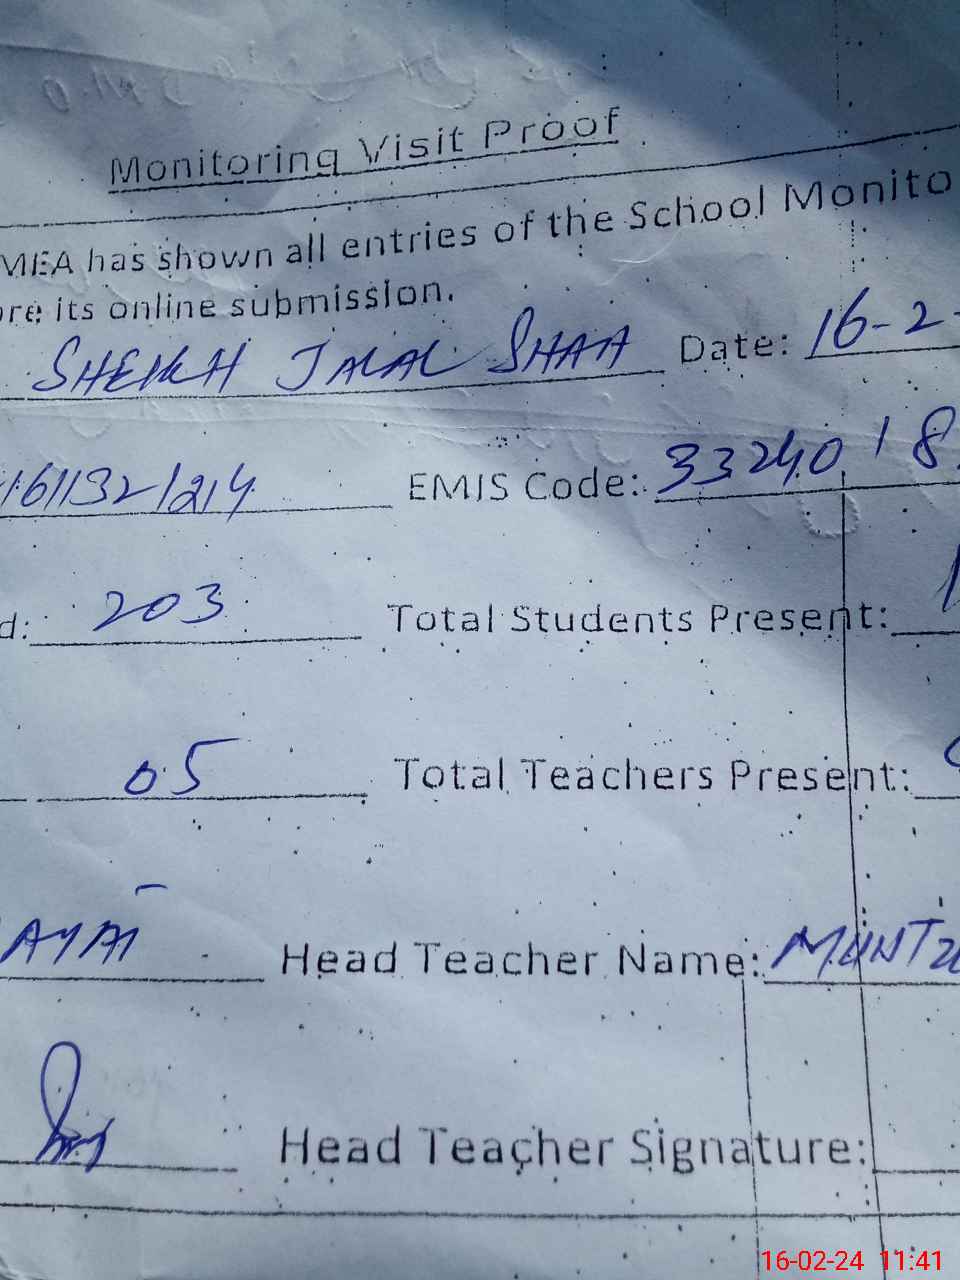 Monitoring Visit Proof
MEA has shown all entries of the School Monito
ore its online submission.
SHEIKH JALAL SHAH Date: 16-2-
EMIS Code: 3324018
d: 203 Total Students Present:
05 Total Teachers Present:
Head Teacher Name: MUNTZ
Head Teacher Signature:
16-02-24 11:41